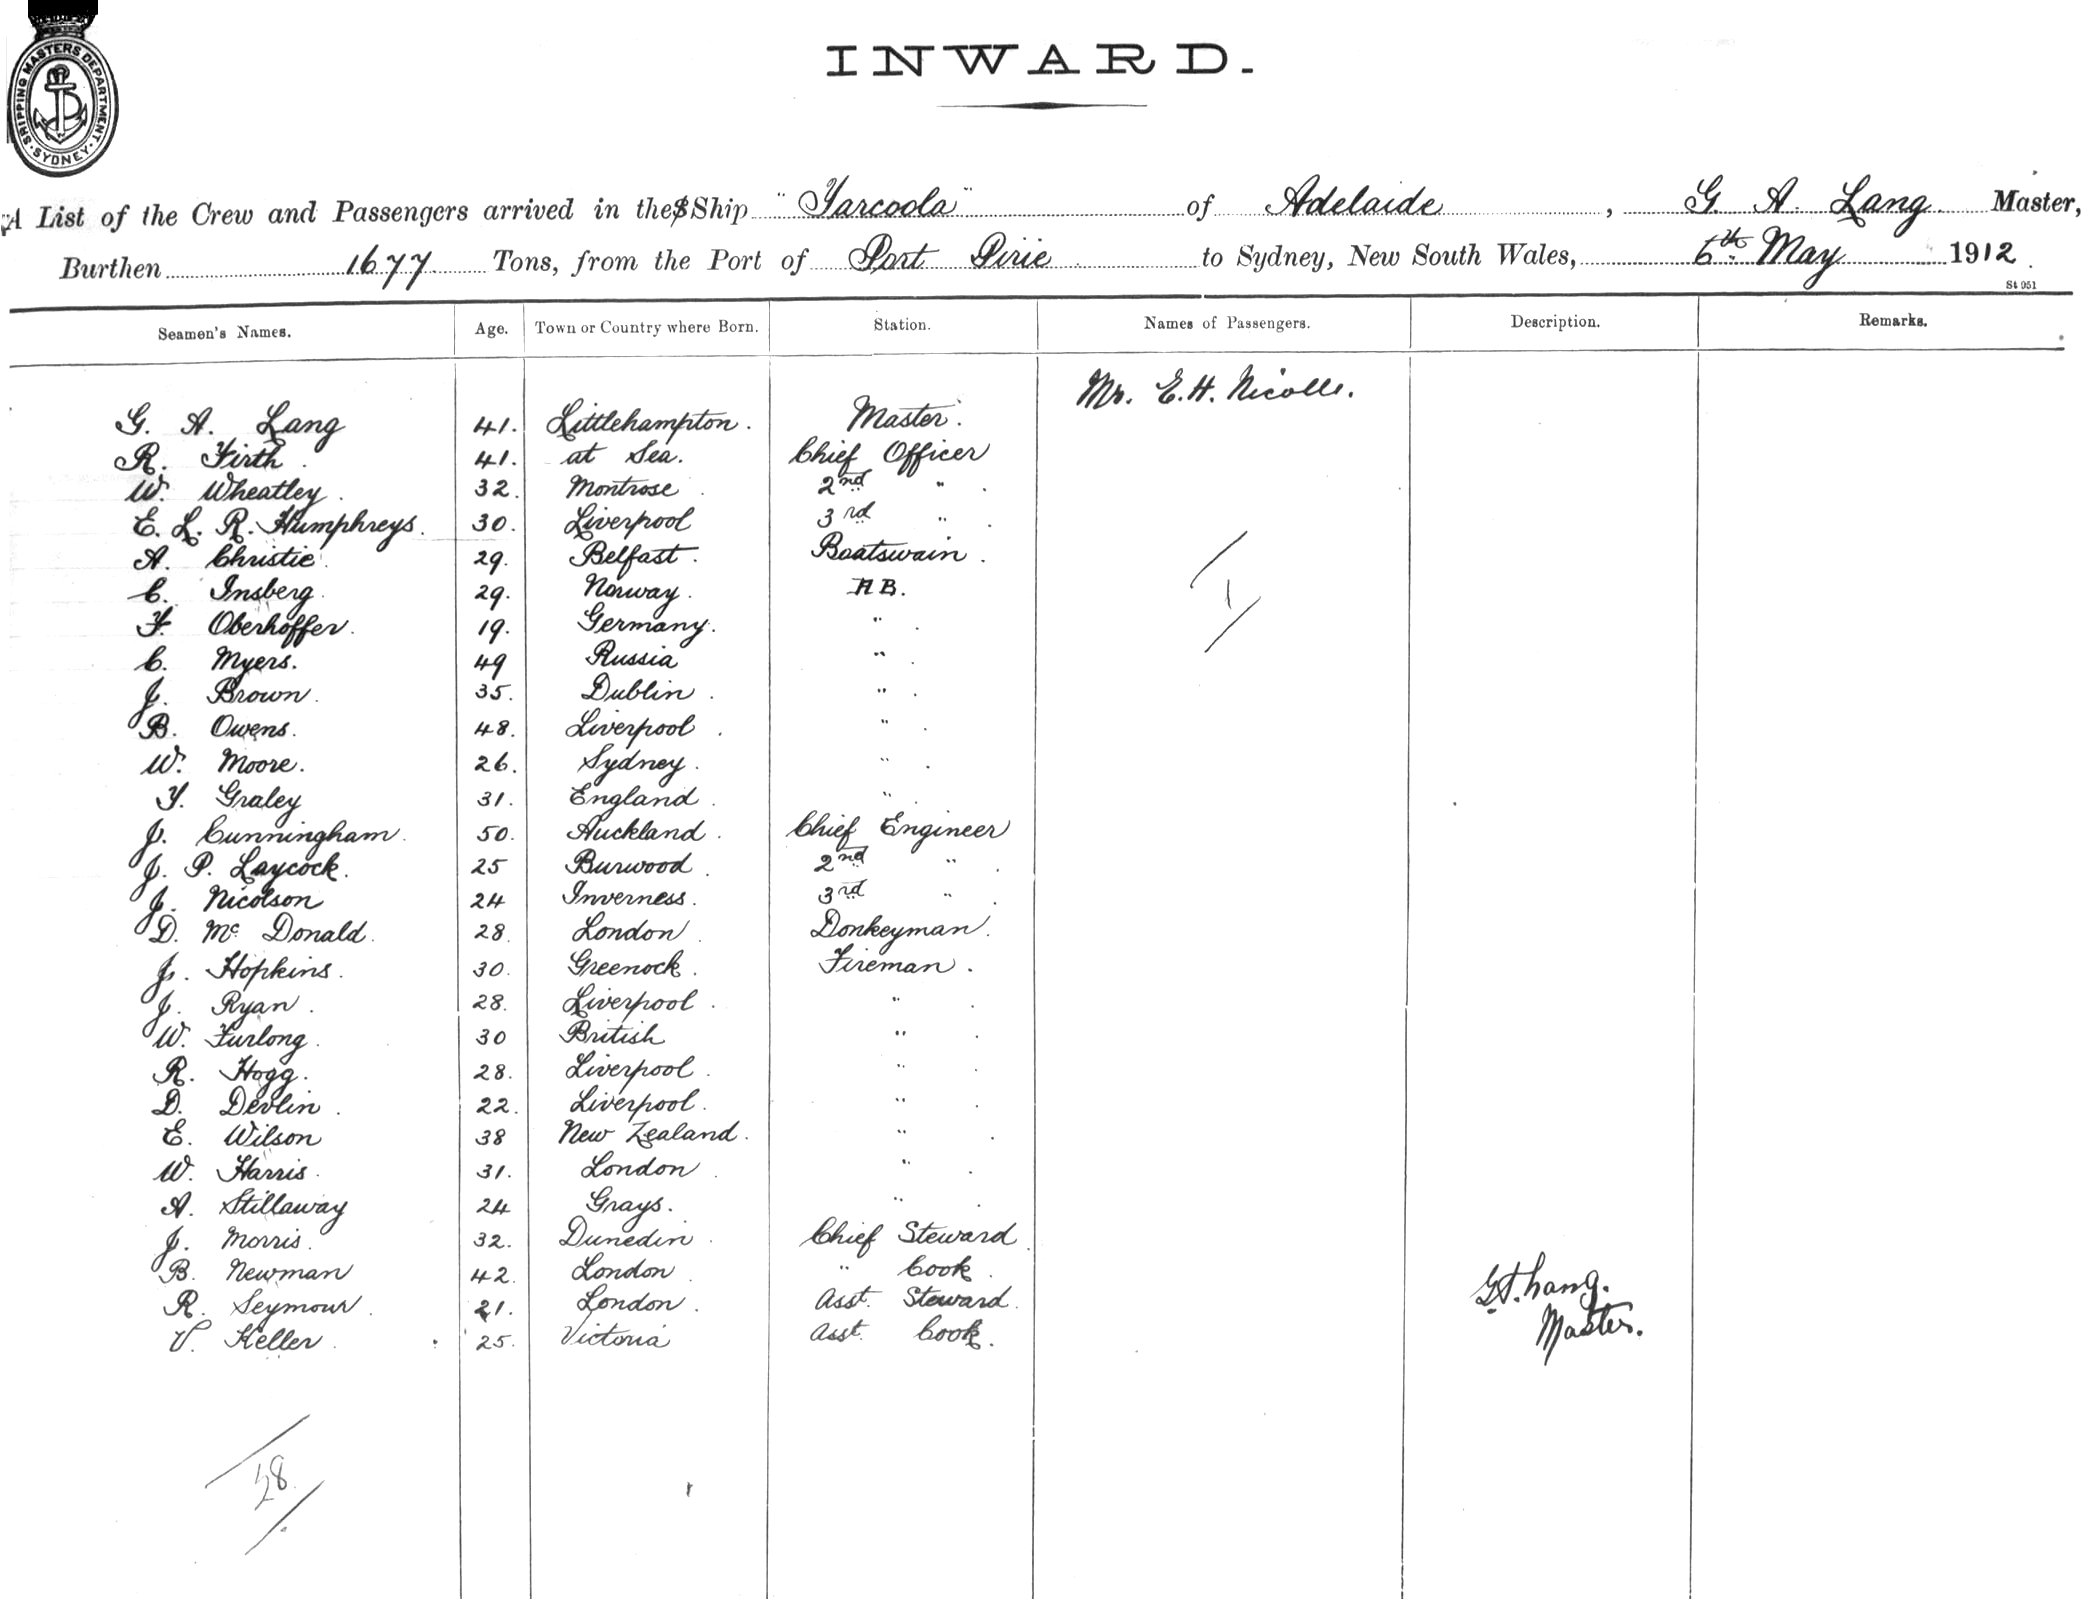 SHIPPING MASTERS DEPARTMENT
SYDNEY
INWARD.
A List of the Crew and Passengers arrived in the S Ship "Yarcoola" of Adelaide, G. A. Lang Master,
Burthen 1677 Tons, from the Port of Port Pirie to Sydney, New South Wales, 6th May 1912.
St 051
Seamen's Names. Age. Town or Country where Born. Station. Names of Passengers. Description. Remarks.
Mr. E. H. Nicolle.
G. A. Lang 41. Littlehampton. Master.
R. Firth. 41. at Sea. Chief Officer
W. Wheatley. 32. Montrose. 2nd " .
E. L. R. Humphreys. 30. Liverpool 3rd " .
A. Christie. 29. Belfast. Boatswain.
C. Insberg. 29. Norway. A B.
F. Oberhoffer. 19. Germany. " .
C. Myers. 49 Russia " .
J. Brown. 35. Dublin. " .
B. Owens. 48. Liverpool. " .
W. Moore. 26. Sydney. " .
F. Graley 31. England. " .
J. Cunningham. 50. Auckland. Chief Engineer
J. P. Laycock. 25 Burwood. 2nd " .
J. Nicolson 24 Inverness. 3rd " .
D. Mc Donald. 28. London. Donkeyman.
J. Hopkins. 30. Greenock. Fireman.
J. Ryan. 28. Liverpool. " .
W. Furlong. 30 British " .
R. Hogg. 28. Liverpool. " .
D. Devlin. 22. Liverpool. " .
E. Wilson 38 New Zealand. " .
W. Harris. 31. London. " .
A. Stillaway 24 Grays. " .
J. Morris. 32. Dunedin. Chief Steward.
B. Newman 42. London. " Cook.
R. Seymour. 21. London. Asst. Steward.
V. Keller. 25. Victoria Asst. Cook.
1
G A. Lang.
Master.
28